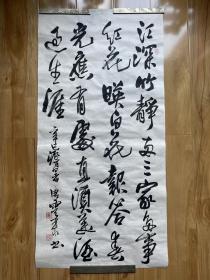 江深竹靜兩三家多事
紅花映白花報答春
光應有處直須美酒
送生涯